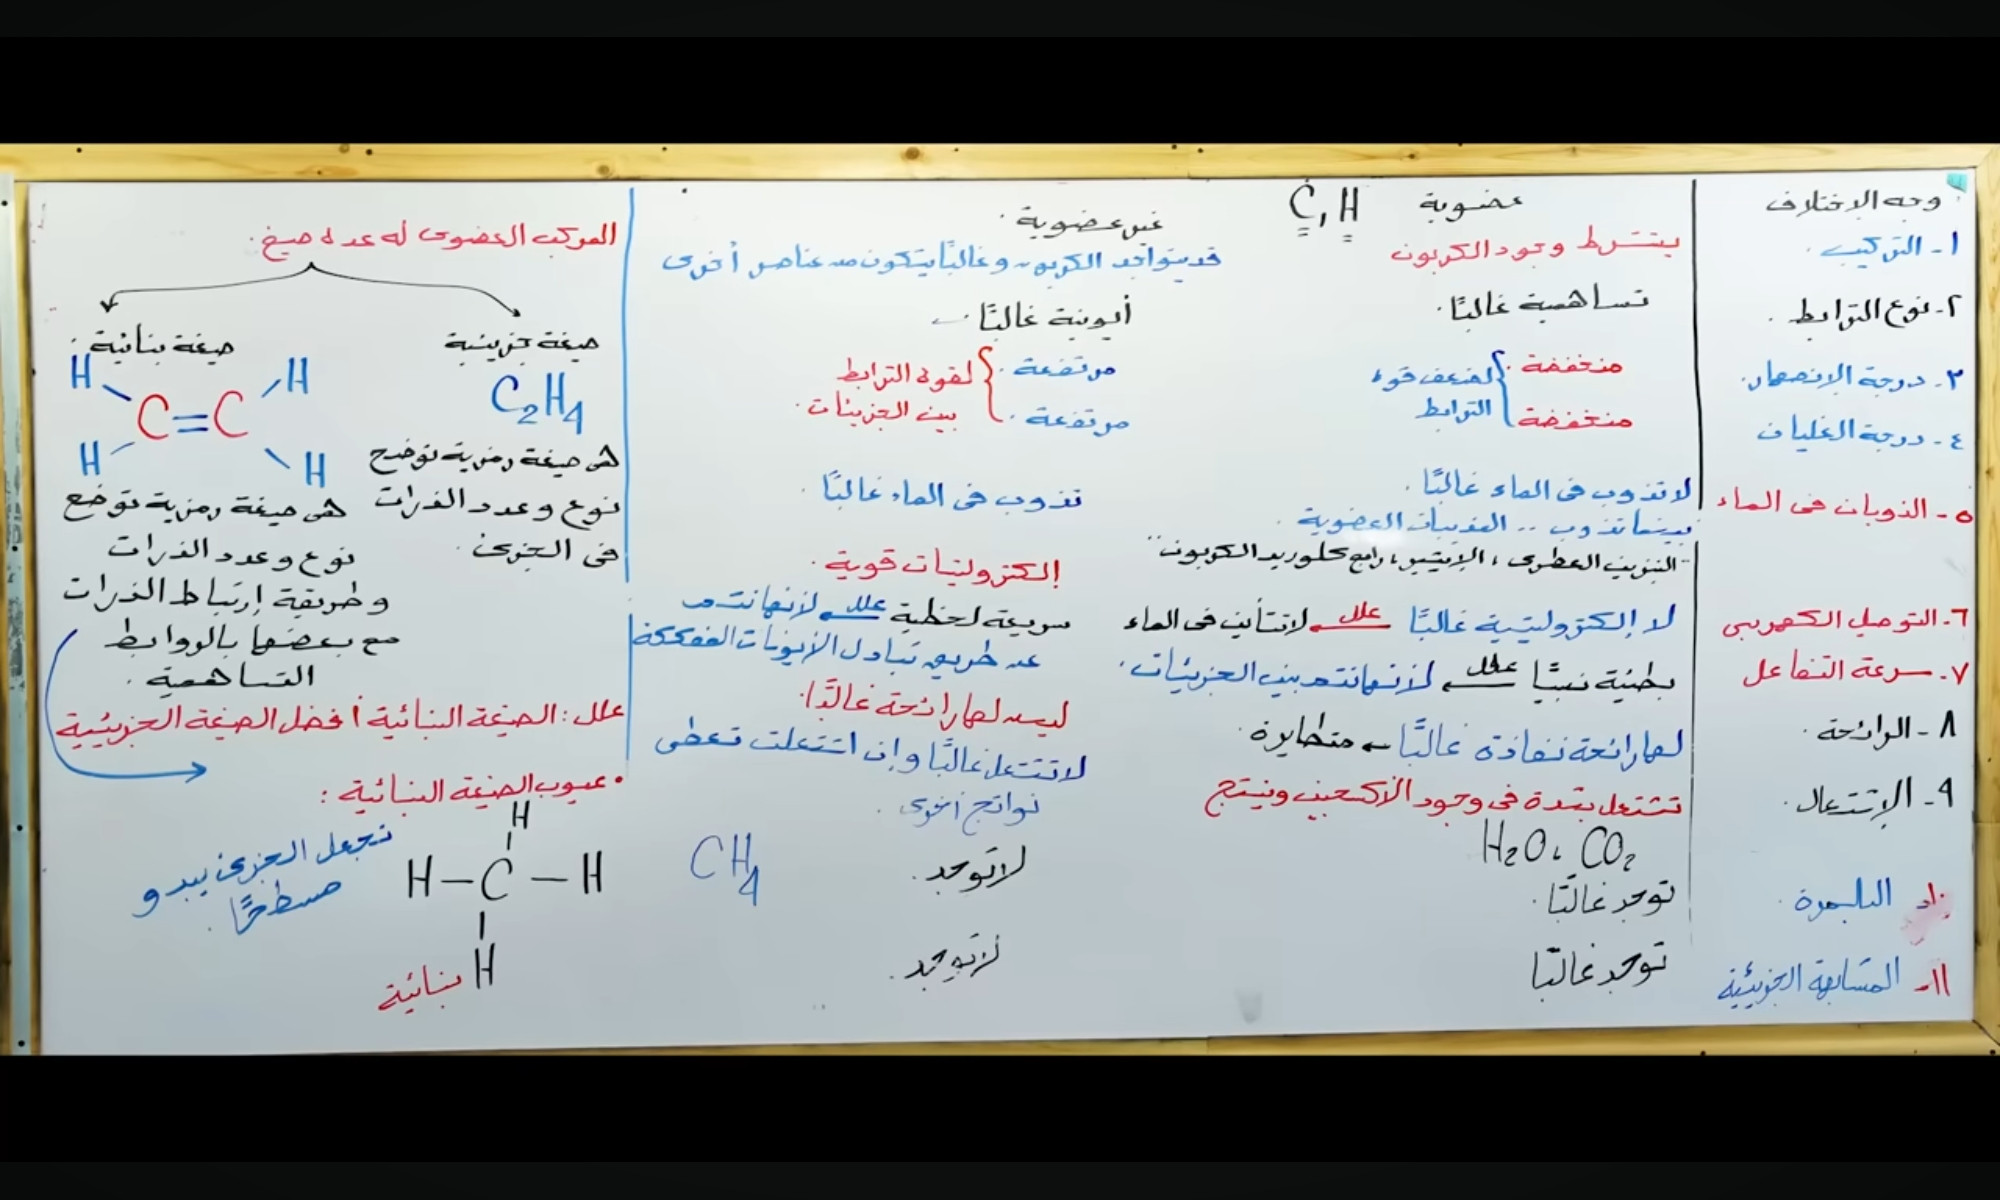 وجه الاختلاف
عضوية C, H
غير عضوية
١- التركيب
يشترط وجود الكربون
قد يتواجد الكربون وغالبًا يتكون من عناصر أخرى
٢- نوع الترابط
تساهمية غالبًا
أيونية غالبًا
٣- درجة الانصهار
منخفضة
لضعف قوة
مرتفعة
لقوة الترابط
٤- درجة الغليان
منخفضة
الترابط
مرتفعة
بين الجزيئات
٥- الذوبان فى الماء
لا تذوب فى الماء غالبًا
تذوب فى الماء غالبًا
بينما تذوب .. المذيبات العضوية
"البنزين العطرى، الإيثير، رابع كلوريد الكربون"
٦- التوصيل الكهربى
لا إلكتروليتية غالبًا علل لا تتأين فى الماء
إلكتروليتات قوية
٧- سرعة التفاعل
بطيئة نسبيًا علل لأنها تتم بين الجزيئات
سريعة لحظية علل لأنها تتم
عن طريق تبادل الأيونات المفككة
٨- الرائحة
لها رائحة نفاذة غالبًا ← متطايرة
ليس لها رائحة غالبًا
٩- الإشتعال
تشتعل بشدة فى وجود الأكسجين وينتج
H₂O، CO₂
لا تشتعل غالبًا وإن اشتعلت تعطى
نواتج أخرى
١٠- البلمرة
توجد غالبًا
لا توجد
١١- المشابهة الجزيئية
توجد غالبًا
لا توجد
المركب العضوى له عدة صيغ
صيغة جزيئية
C₂H₄
هى صيغة رمزية توضح
نوع وعدد الذرات
فى الجزئ
صيغة بنائية
H H
C=C
H H
هى صيغة رمزية توضح
نوع وعدد الذرات
وطريقة إرتباط الذرات
مع بعضها بالروابط
التساهمية
علل: الصيغة البنائية أفضل الصيغة الجزيئية
• عيوب الصيغة البنائية:
تجعل الجزئ يبدو
مسطحًا
H
H–C–H
H
بنائية
CH₄